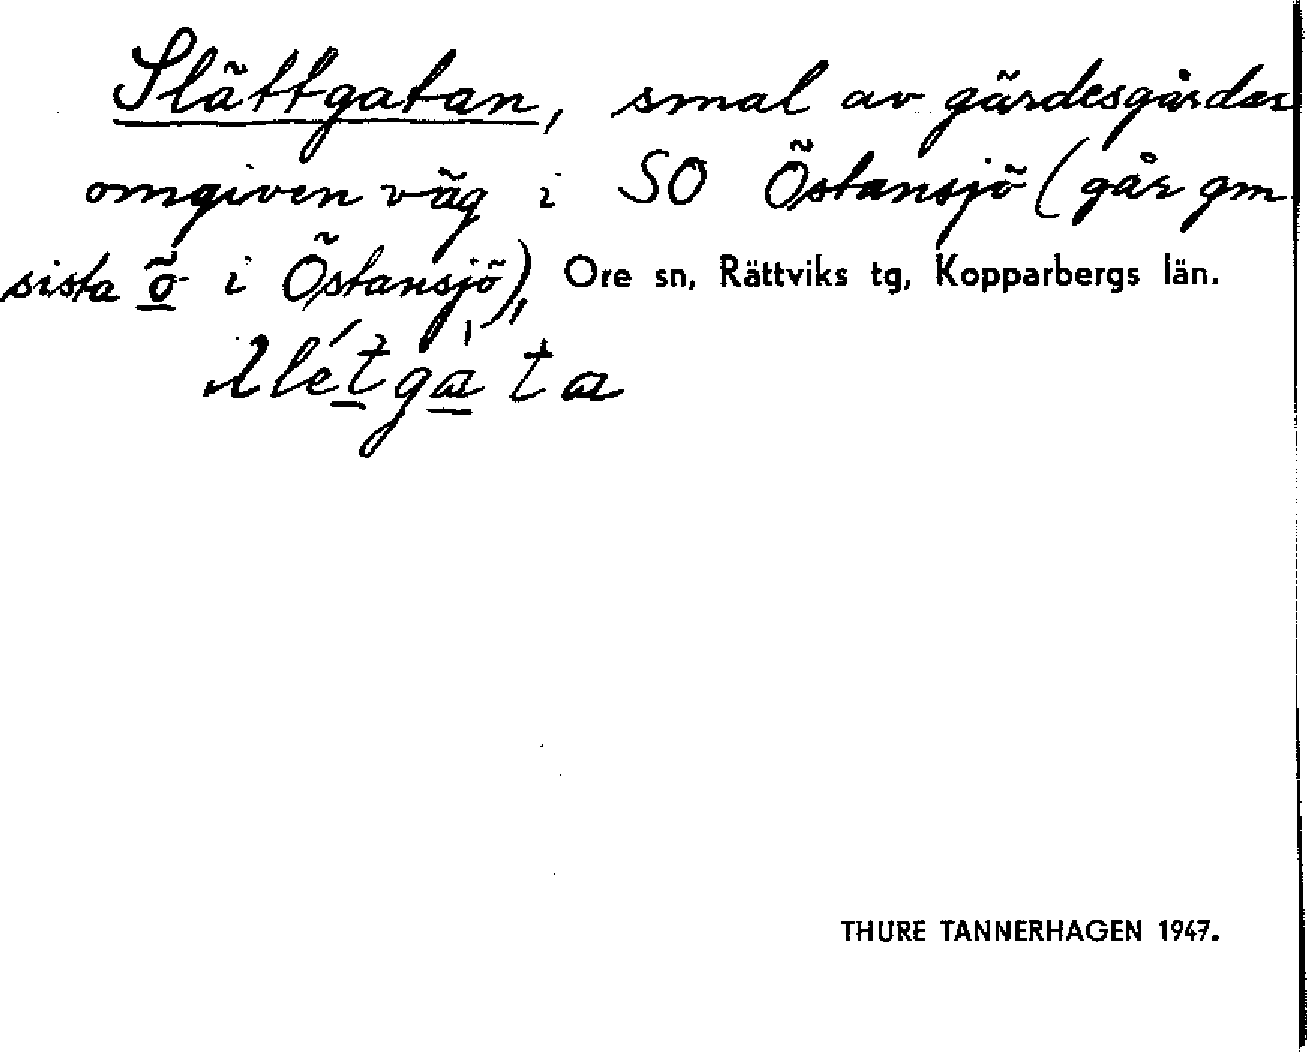 Slättgatan, smal av gärdesgårdar
omgiven väg i SO Östansjö (går gm
sista ö i Östansjö), Ore sn, Rättviks tg, Kopparbergs län.
THURE TANNERHAGEN 1947.